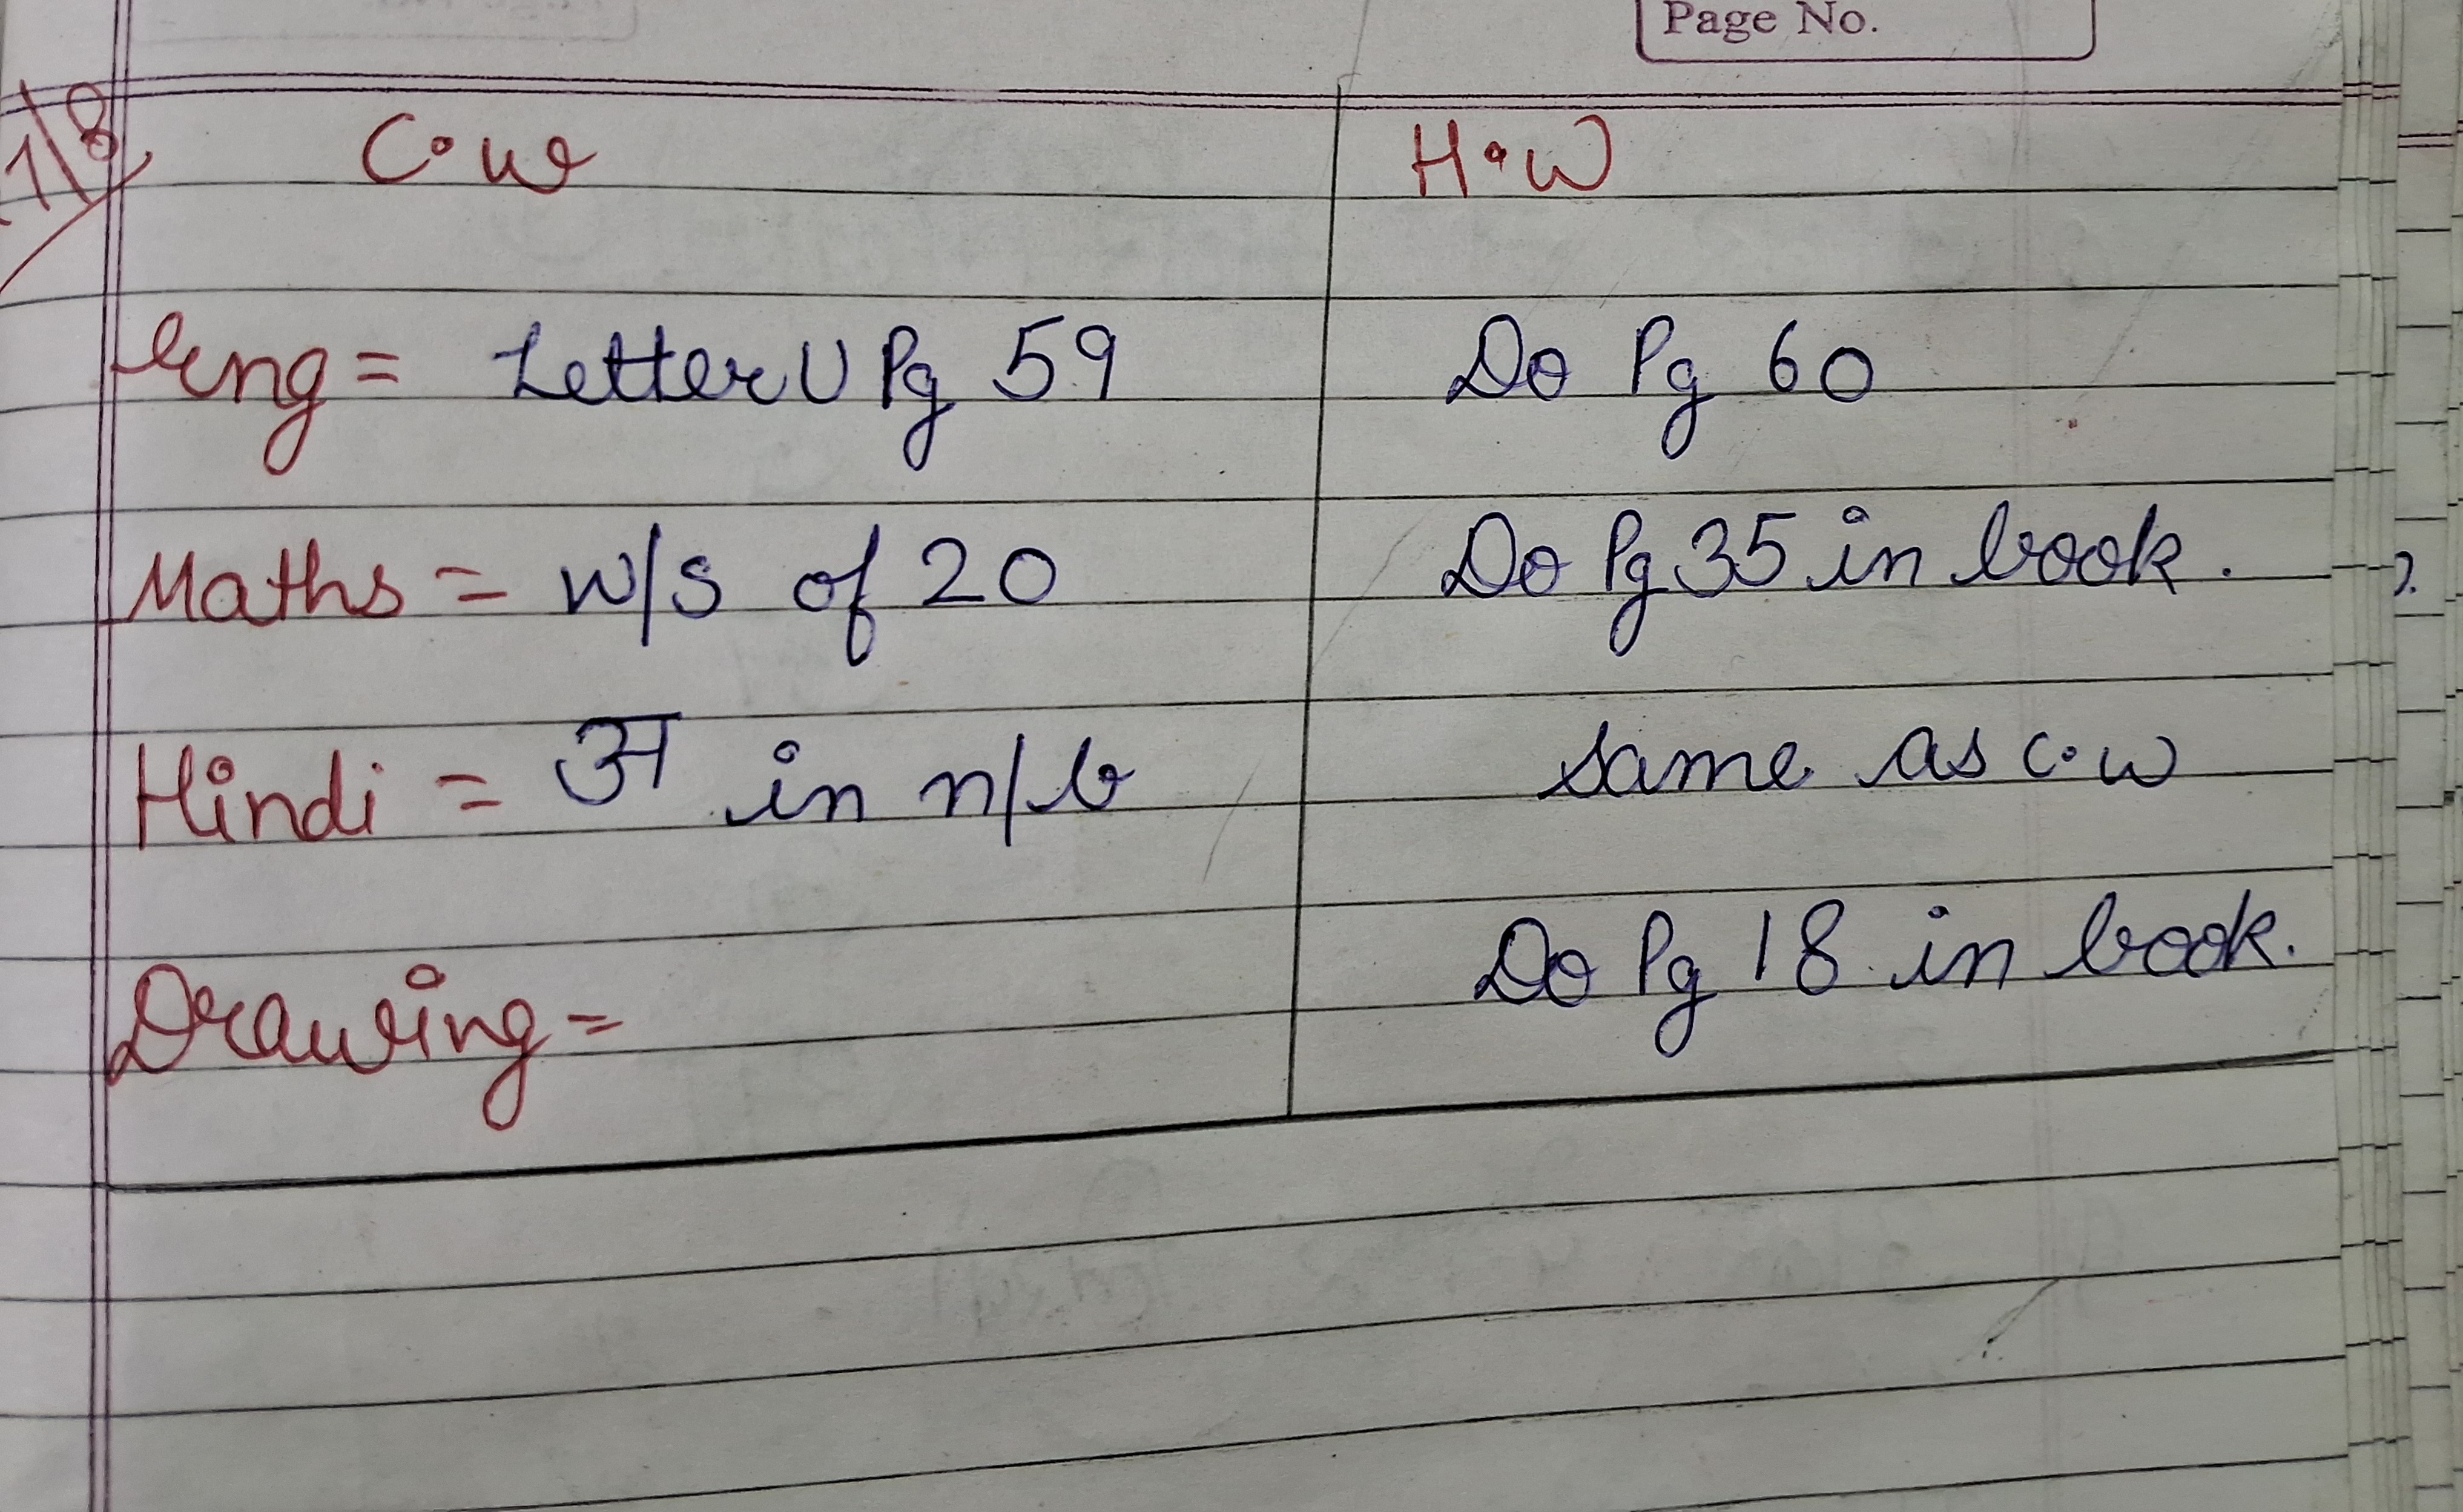 Page No.
1/8 C.w H.w
Eng = Letter U Pg 59 Do Pg 60
Maths = w/s of 20 Do Pg 35 in book.
Hindi = अ in n/b same as c.w
Drawing = Do Pg 18 in book.